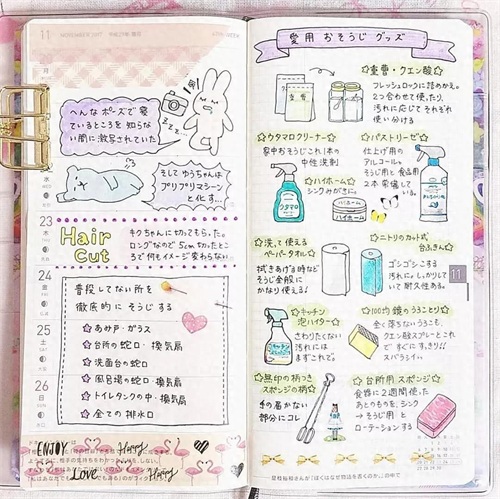 11 NOVEMBER 2017
4TH WEEK
月
へんなポーズで寝
ているところを 知らな
い間に激写されていた
Zzz…
そして ゆうちゃんは
プリプリマシーン
と化す…
水
23
木
Hair
Cut
キクちゃんに切ってもらった。
ロングなので 5cm 切ったとこ
ろで何もイメージ変わらない
24
金
普段してない所を
徹底的に そうじする
☆ あみ戸・ガラス
☆ 台所の蛇口・換気扇
☆ 洗面台の蛇口
☆ 風呂場の蛇口・換気扇
☆ トイレタンクの中・換気扇
☆ 全ての排水口
25
土
26
日
ENJOY
Happy
Love
Happy
愛用 おそうじ グッズ
☆重曹・クエン酸☆
フレッシュロックに詰めかえ。
2つ合わせて使ったり、
汚れに応じてそれぞれ
使い分ける
☆ウタマロクリーナー☆
家中おそうじこれ1本の
中性洗剤
ウタマロ
☆パストリーゼ☆
仕上げ用の
アルコール。
そうじ用と食品用
2本常備している。
☆ハイホーム☆
シンクみがきに。
ハイホーム
☆洗って使える
ペーパータオル☆
拭きあげ8時など
そうじ全般に
かなり使える!
☆ニトリのカット式
台ふきん☆
ゴシゴシする
汚れにも しっかりして
いて耐久性ある。
11
☆キッチン
泡ハイター☆
さわりたくない
汚れには
まずこれで。
☆100均 鏡のうろことり☆
全く落ちないうろこも、
クエン酸スプレーとこれ
で すぐにすきり!!
スバラシイ。
☆無印の柄つき
スポンジの柄☆
手の届かない
部分にコレ
☆台所用 スポンジ☆
食器に2週間使た
あとのものを、シンク
→そうじ用 と
ローテーションする